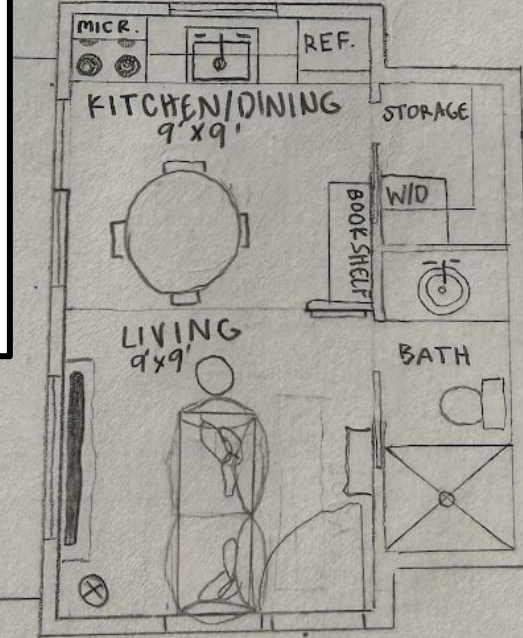 MICR.
REF.
KITCHEN/DINING
9'X9'
STORAGE
W/D
BOOKSHELF
LIVING
9'x9'
BATH